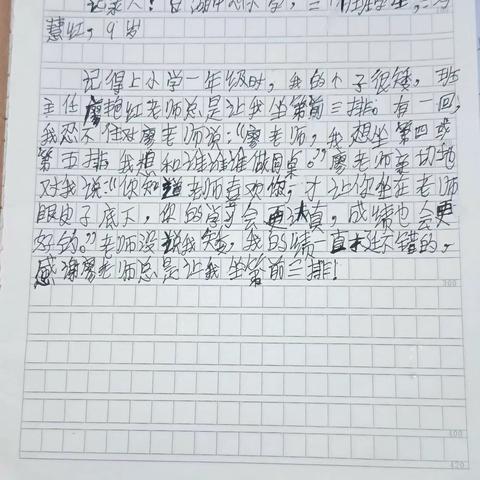 记录人:
慧虹,9岁
记得上小学一年级时,我的个子很矮,班
主任廖艳红老师总是让我坐第前三排。有一回,
我忍不住对廖老师说:“廖老师,我想坐第四或
第五排,我想和谁谁谁做同桌。”廖老师亲切地
对我说:“你知道老师喜欢你,才让你坐在老师
眼皮子底下,你的学习会更认真,成绩也会更
好的。”老师没说我矮,我的成绩一直挺不错的,
感谢廖老师总是让我坐第前三排!
300
400
420